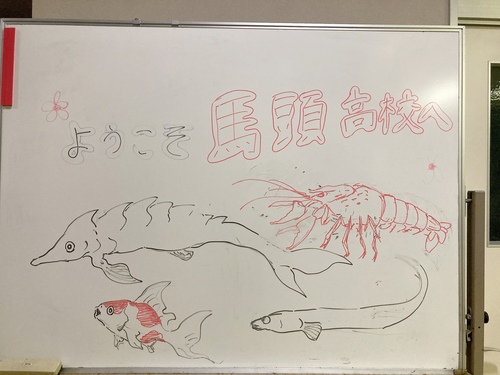 ようこそ 馬頭高校へ